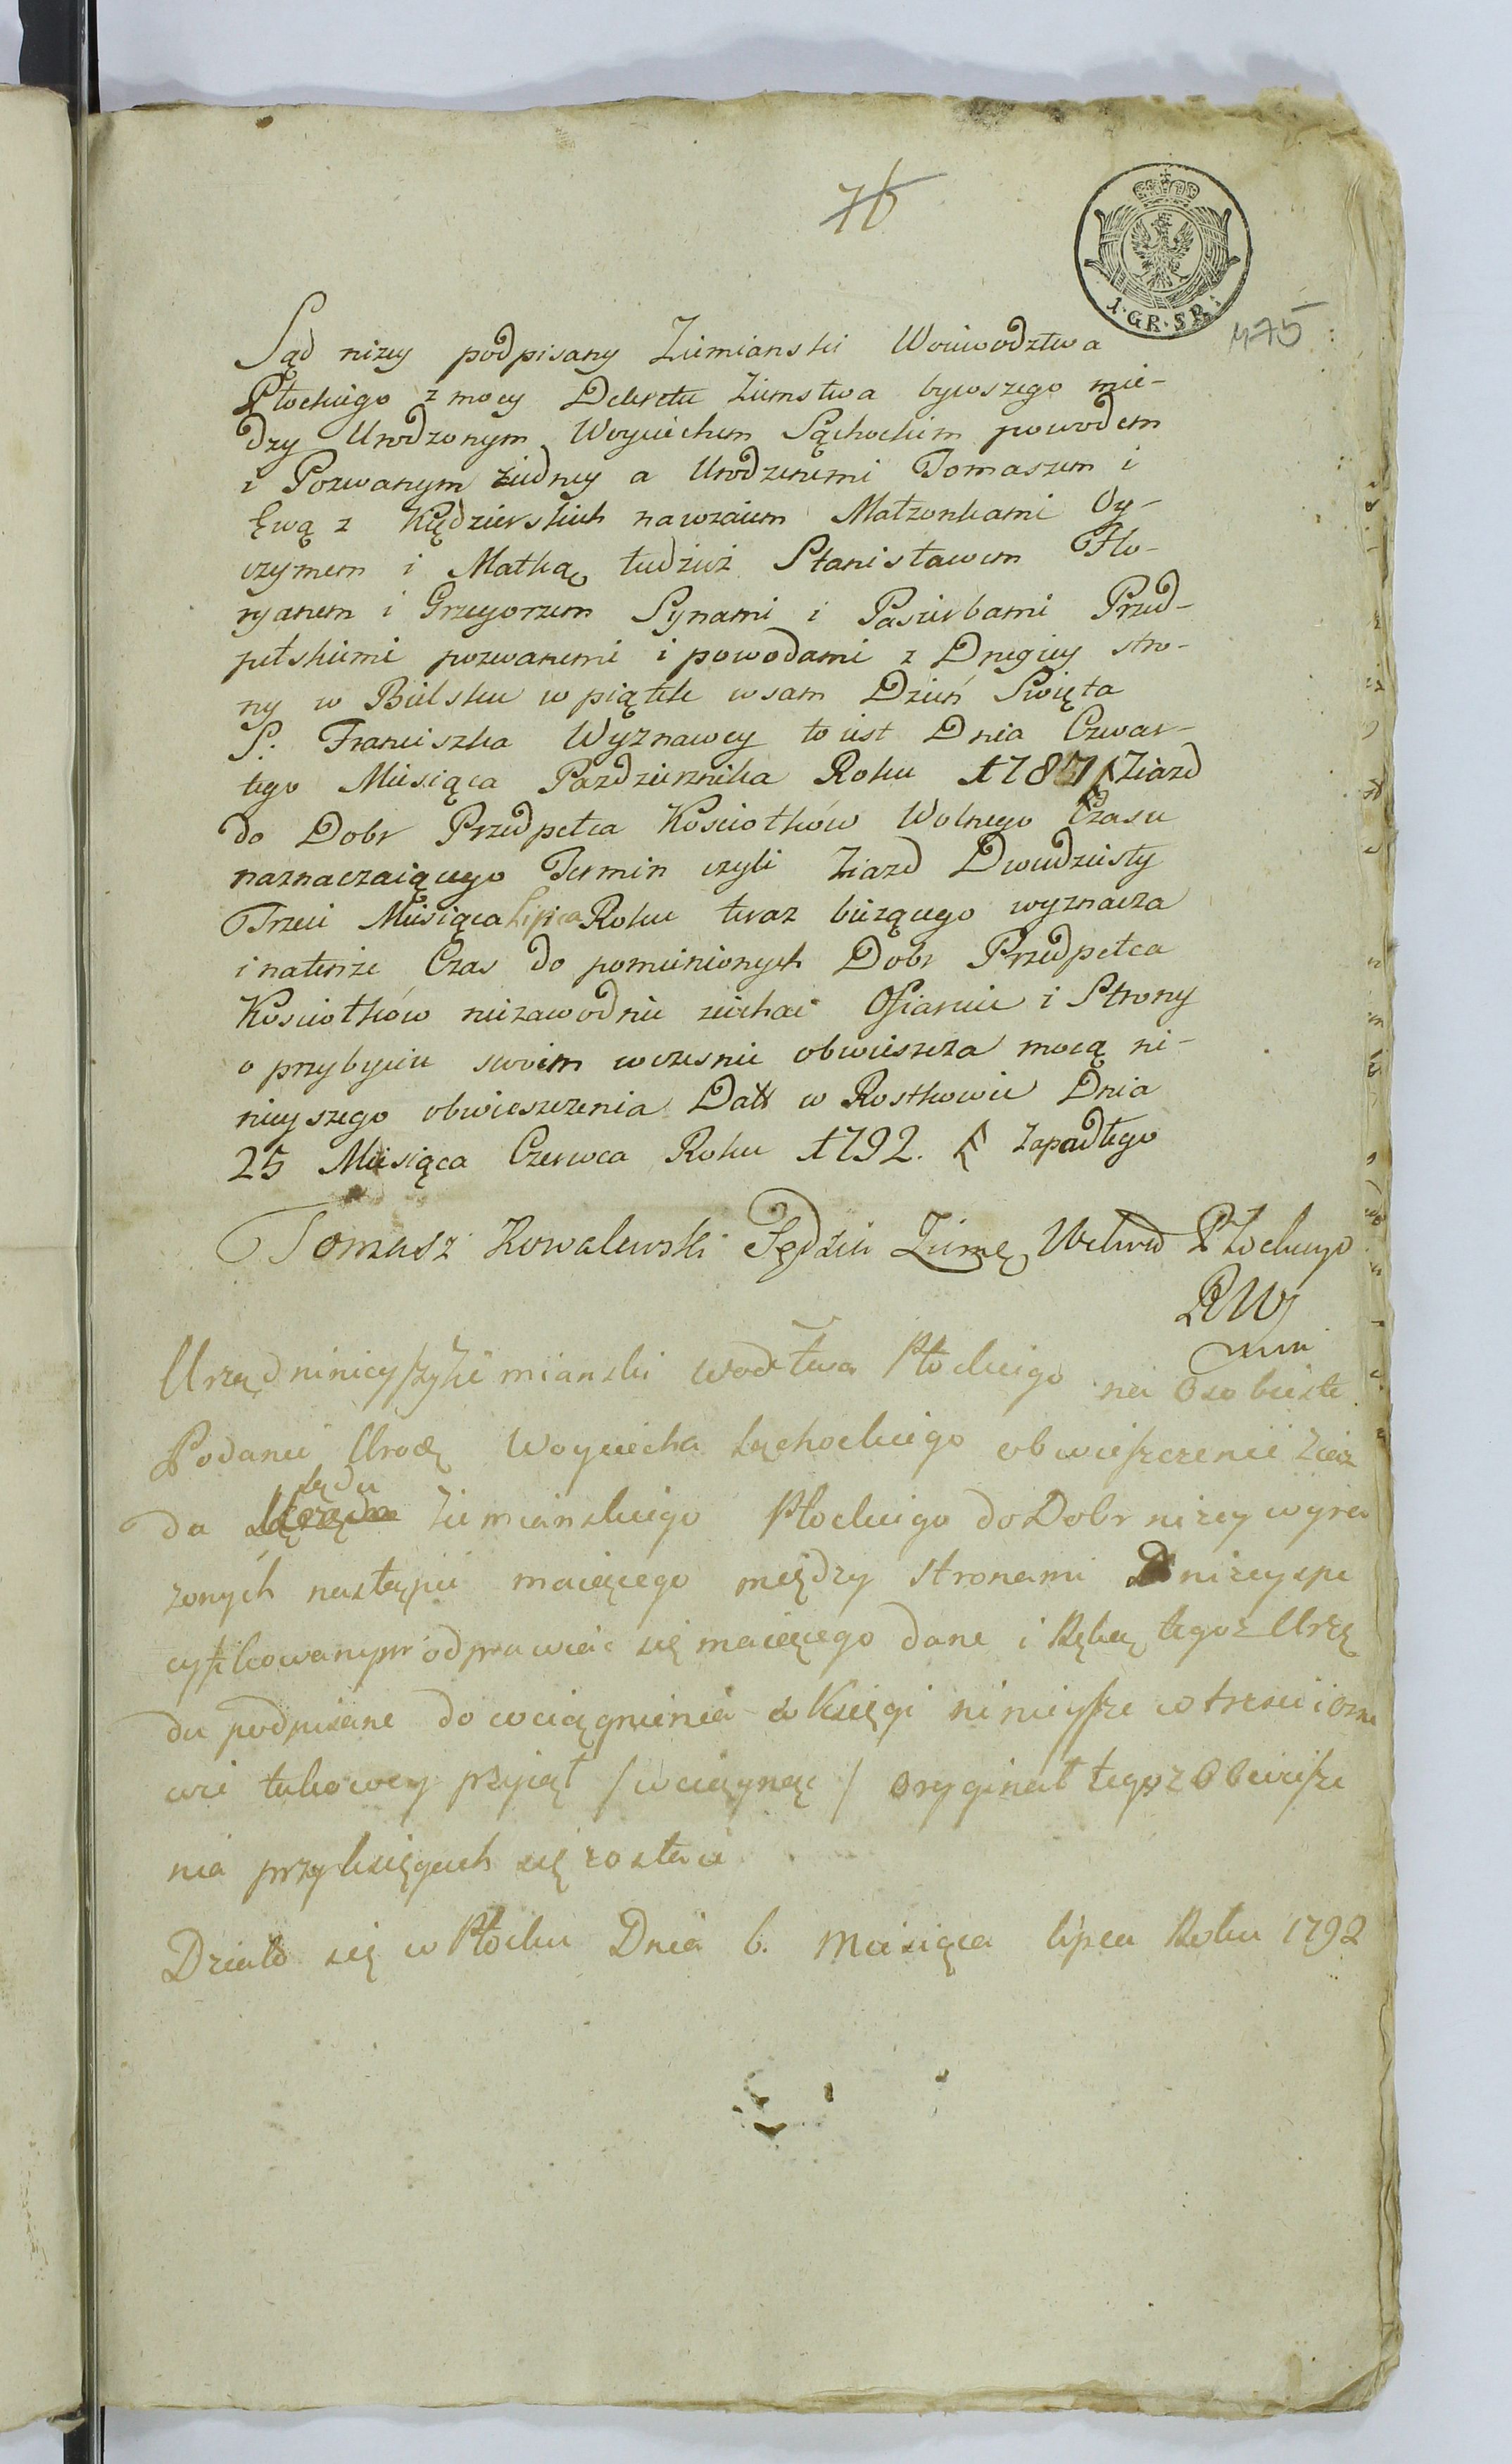 76
1·GR·SR·
475
Sąd niżey podpisany Ziemianski Woiewodztwa
Płockiego z mocy Dekretu Ziemstwa bywszego mie-
dzy Urodzonym Woyciechem Sąchockim powodem
i Pozwanym ziedney a Urodzenemi Tomaszem i
Ewą z Kędzierskich nawzaiem Małzonkami Oy-
czymem i Matką tudzież Stanisławem Flo-
ryanem i Grzegorzem Synami i Pasierbami Przed-
pełskiemi pozwanemi i powodami z Drugiey stro-
ny w Bielsku w piątek w sam Dzień Swięta
S. Franciszka Wyznawcy to iest Dnia Czwar-
tego Miesiąca Pazdziernika Roku 1787 Ziazd
do Dobr Przedpełca Kosciołków Wolnego Czasu
naznaczaiącego Termin czyli Ziazd Dwudziesty
Trzeci Miesiąca Lipca Roku teraz bieżącego wyznacza
i natenże Czas do pomienionych Dobr Przedpełca
Kosciołków niezawodnie ziechac Ofiaruie i Strony
o przybyciu swoim wczesnie obwieszcza mocą ni-
nieyszego obwieszczenia Datt w Rostkowie Dnia
25 Miesiąca Czerwca Roku 1792. zapadłego
Tomasz Kowalewski Sędzia Ziemś Wdwa Płockiego
Urząd ninieyszy Ziemianski Wodztwa Płockiego na Osobiste
Podanie Urodz Woyciecha Sąchockiego obwieszczenie Ziaz
du Sądu Ziemianskiego Płockiego do Dobr niżey wyra
żonych nastąpić maiącego między Stronami niżey spe
cyfikowanym odprawiać się maiącego dane i Ręką tegoż Urzę
du podpisane do wciągnienia w Księgi ninieysze w tresci i osno
wie takowey przyiął /wciągnąć/ oryginał tegoż Obwieszcze
nia przy księgach się zostaie
Działo się w Płocku Dnia 6. Miesiąca lipca Roku 1792